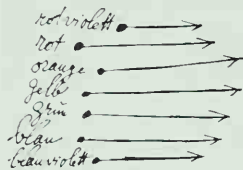 rotviolett
rot
orange
gelb
grün
blau
blauviolett